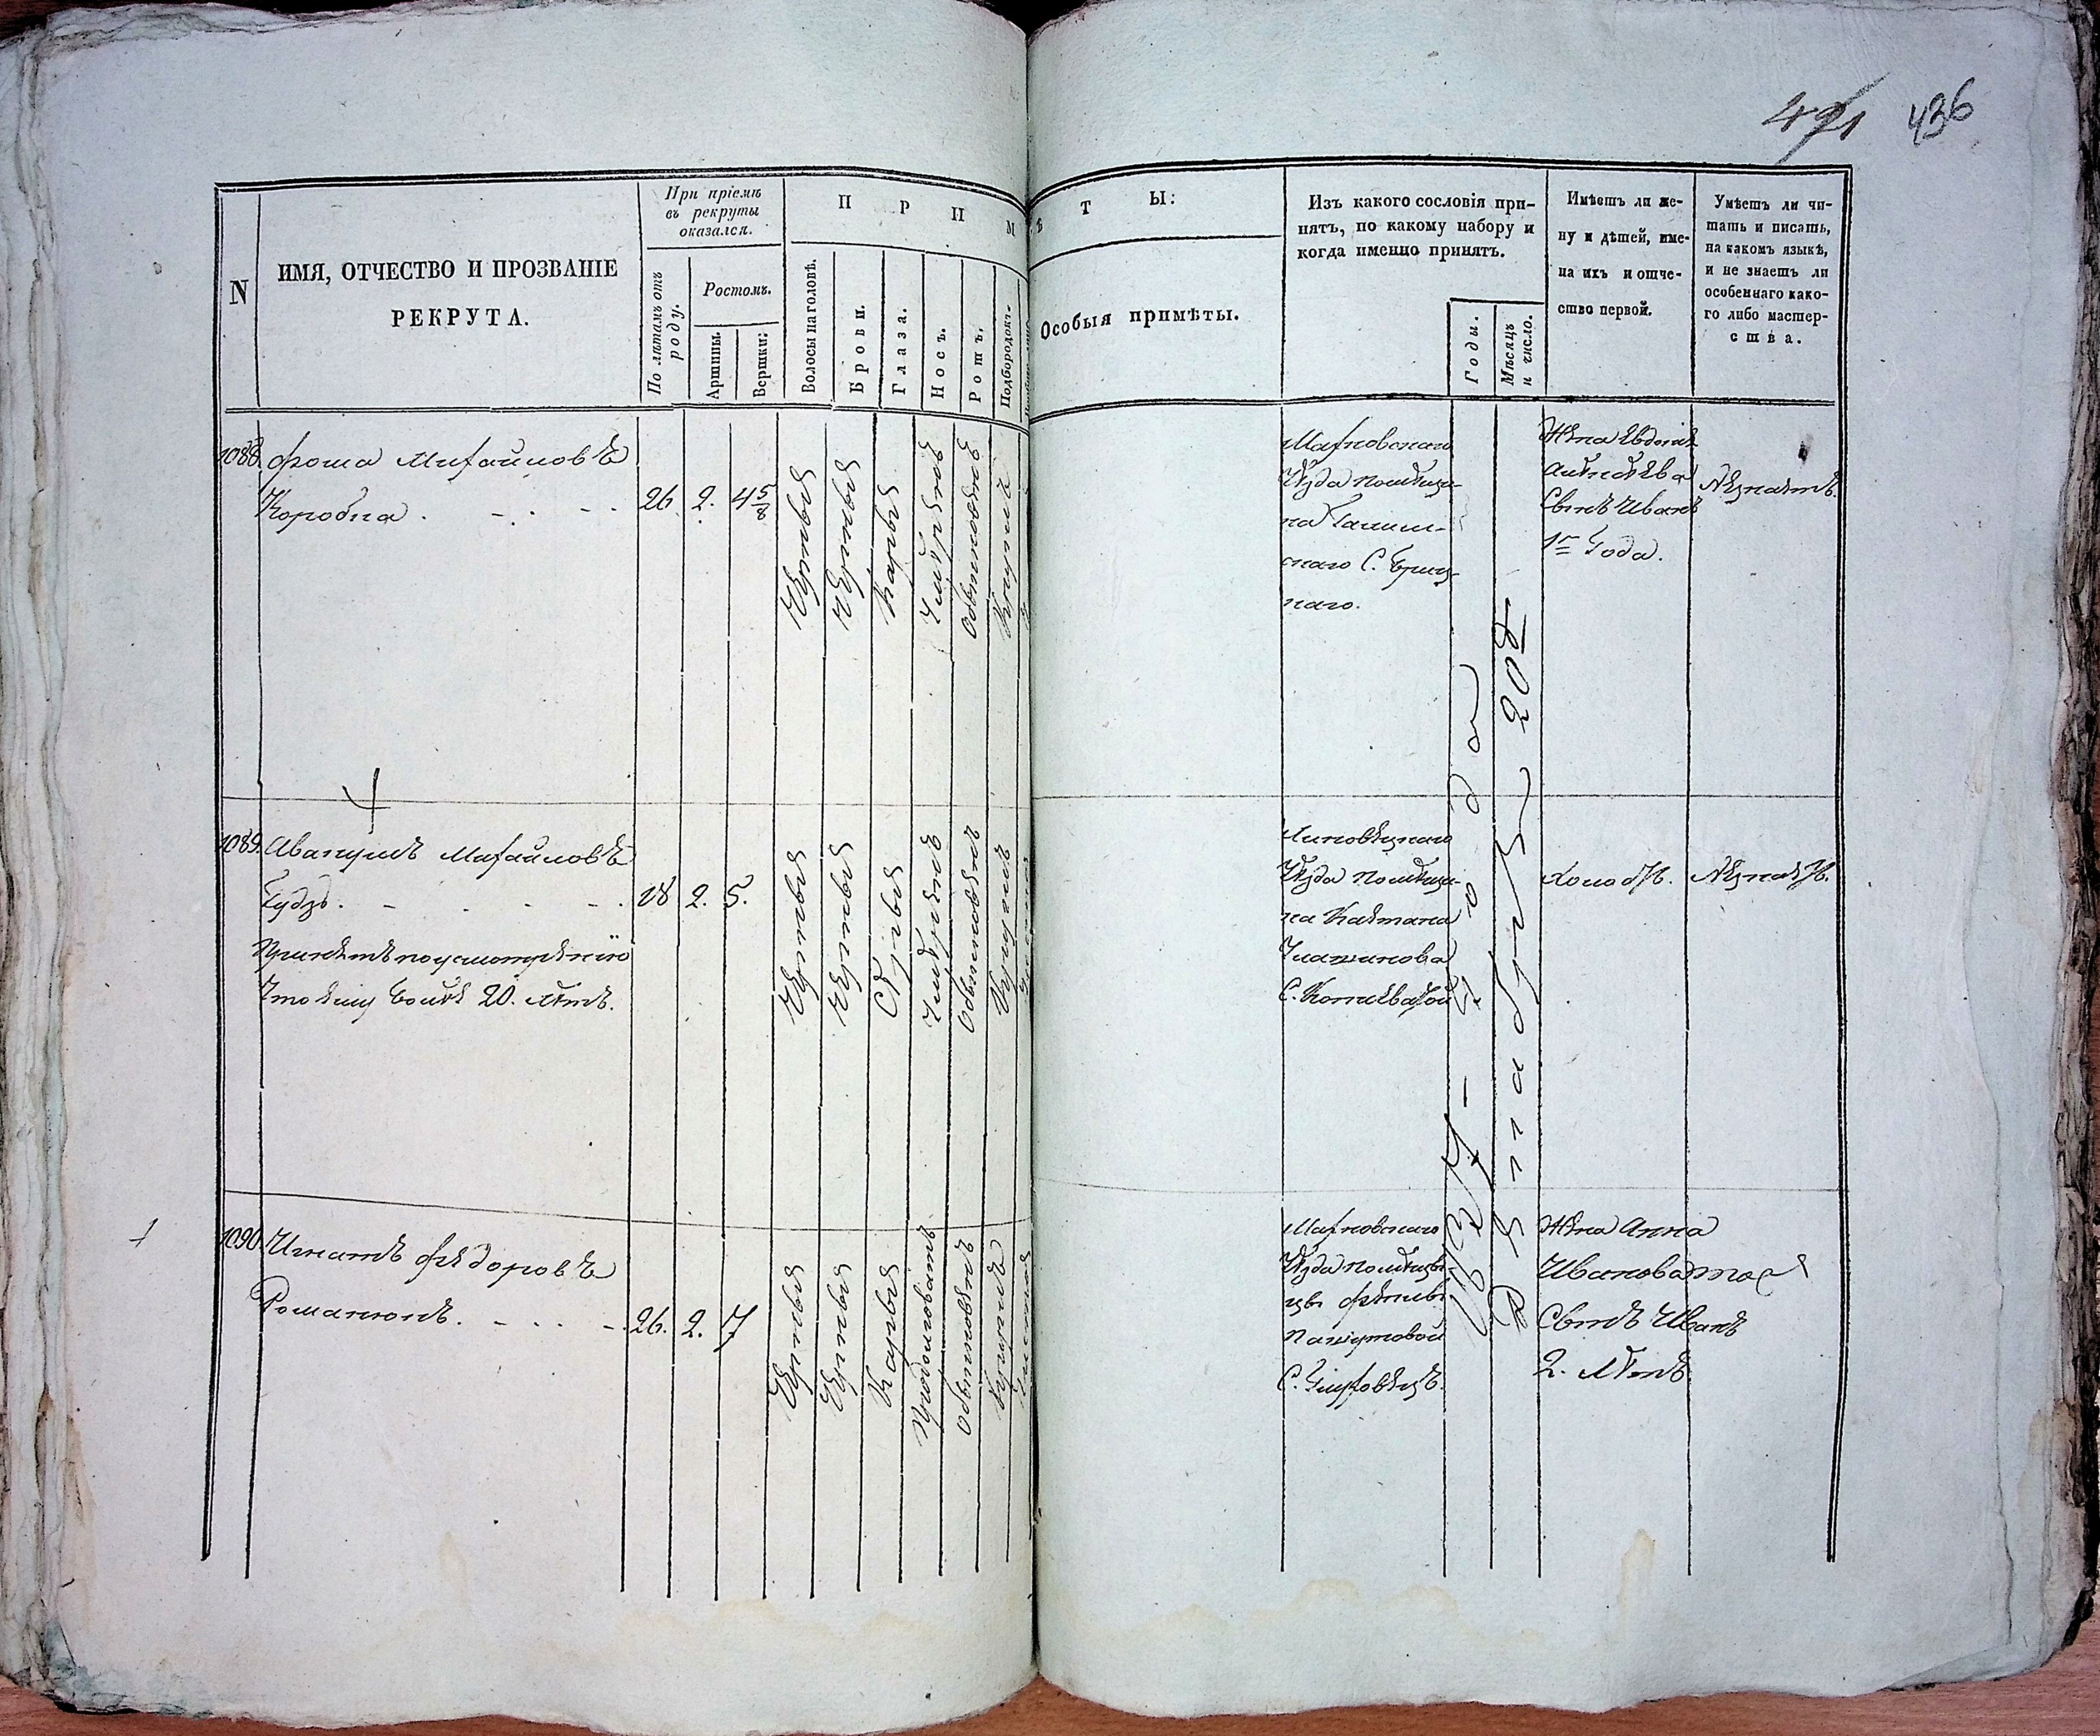 491 436
N
ИМЯ, ОТЧЕСТВО И ПРОЗВАНІЕ
РЕКРУТА.
При пріемѣ
въ рекруты
оказался.
По лѣтамъ отъ
роду.
Ростомъ.
Аршины.
Вершки:
П Р И М
Волосы на головѣ.
Брови.
Глаза.
Носъ.
Ротъ.
Подбородокъ.
ѣ Т Ы:
Особыя примѣты.
Изъ какого сословія при-
нятъ, по какому набору и
когда именно принятъ.
Годы.
Мѣсяцъ
и число.
Имѣетъ ли же-
ну и дѣтей, име-
на ихъ и отче-
ство первой.
Умѣетъ ли чи-
тать и писать,
на какомъ языкѣ,
и не знаетъ ли
особеннаго како-
го либо мастер-
ства.
1088. Фома Михайловъ
Коробка.
26. 2. 4 5/8
Черные
Черные
Карые
Умѣренъ
Обыкновенъ
Круглый
Махновскаго
Уѣзда помѣщи-
ка
скаго С.
наго.
Жена Евдокія
Сынъ Иванъ
1го Года.
Не знаетъ.
1089. Авакумъ Михайловъ
Гудзь.
18 2. 5.
Принятъ по усмотренію
что ему болѣе 20. лѣтъ.
Черные
Черные
Сѣрые
Умѣренъ
Обыкновенъ
Круглый
Чистое
Липовецкаго
Уѣзда помѣщи-
ка Каетана
С. Копіеватой
Холостъ.
Не знаетъ.
1090. Игнатъ Федоровъ
Романюкъ.
26. 2. 7
Черные
Черные
Карые
Продолговатъ
Обыкновенъ
Круглый
Чистое
Махновскаго
Уѣзда помѣщи-
цы
С.
1827-го года
Декабря 20е
Жена Анна
Иванова
Сынъ Иванъ
2. лѣтъ
тоже